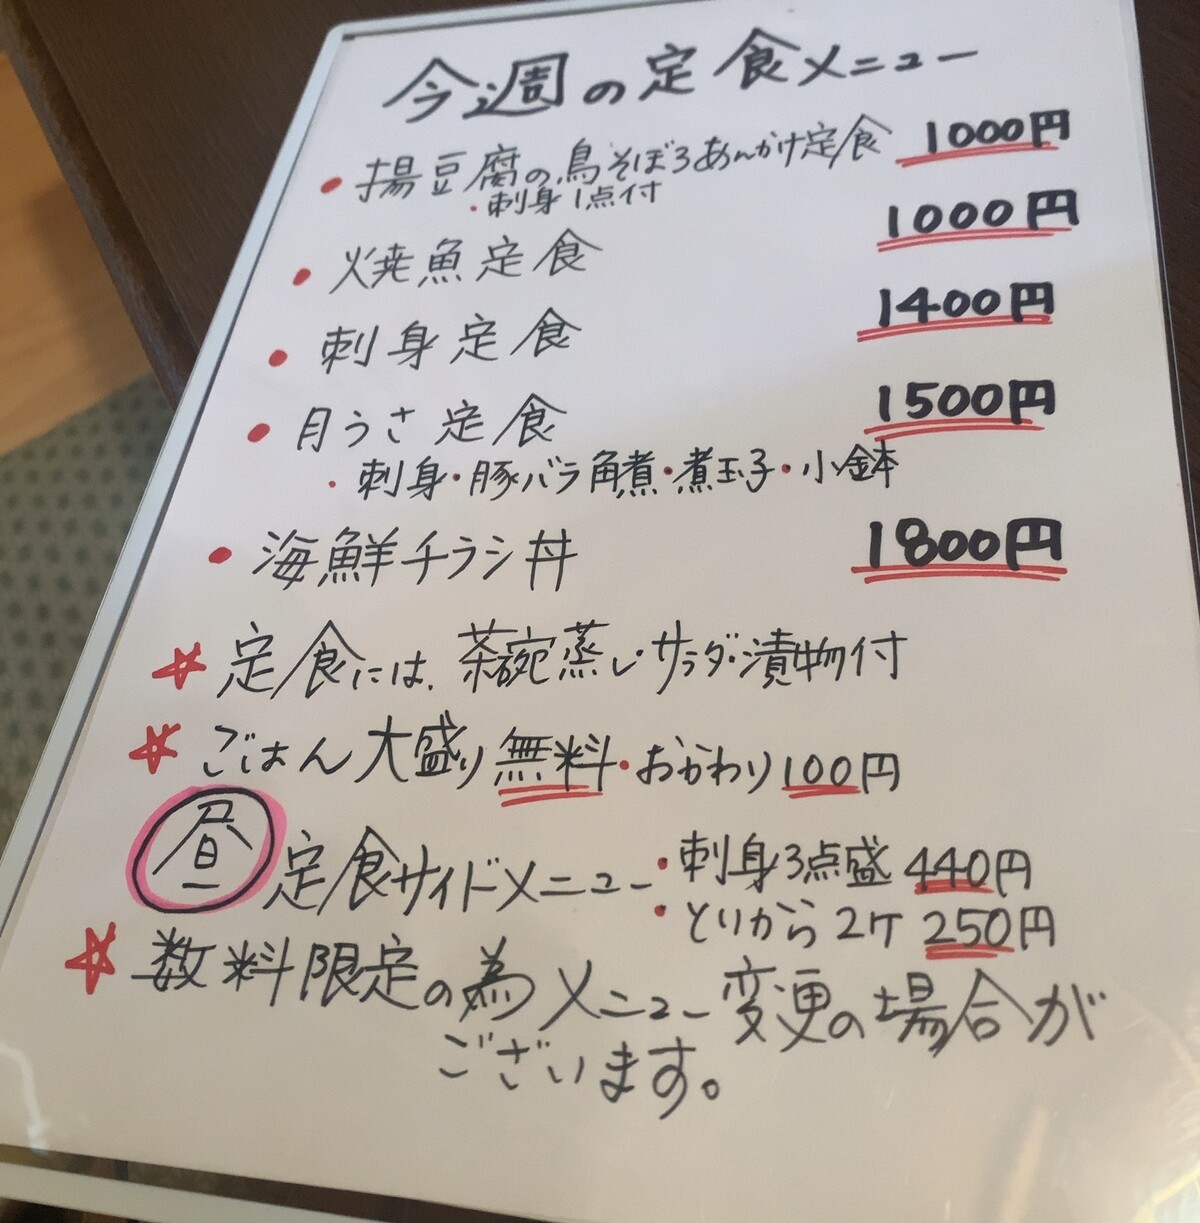 今週の定食メニュー
・揚豆腐の鳥そぼろあんかけ定食 1000円
・刺身1点付
・焼魚定食 1000円
・刺身定食 1400円
・月うさ定食 1500円
・刺身・豚バラ角煮・煮玉子・小鉢
・海鮮チラシ丼 1800円
☆定食には、茶碗蒸し・サラダ・漬物付
☆ごはん大盛り無料・おかわり100円
昼 定食サイドメニュー ・刺身3点盛 440円
・とりから2ケ 250円
☆数料限定の為メニュー変更の場合が
ございます。